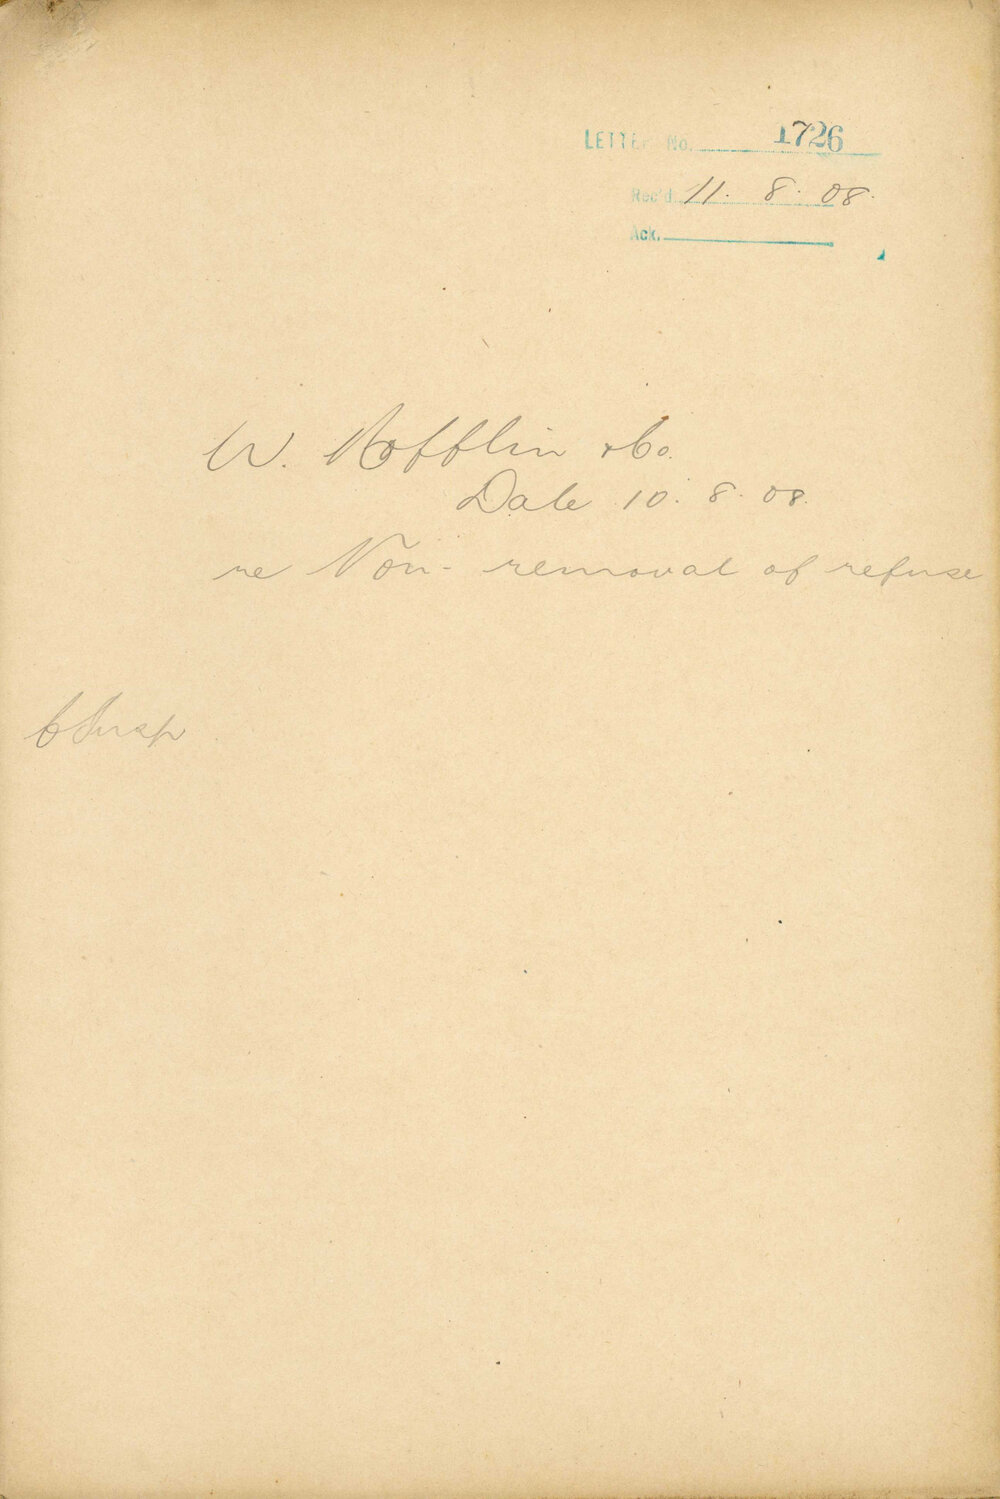 LETTER No. 1726
Rec'd 11. 8. 08.
Ack.
W. Hofflin & Co.
Date 10. 8. 08.
re Non-removal of refuse
C Insp